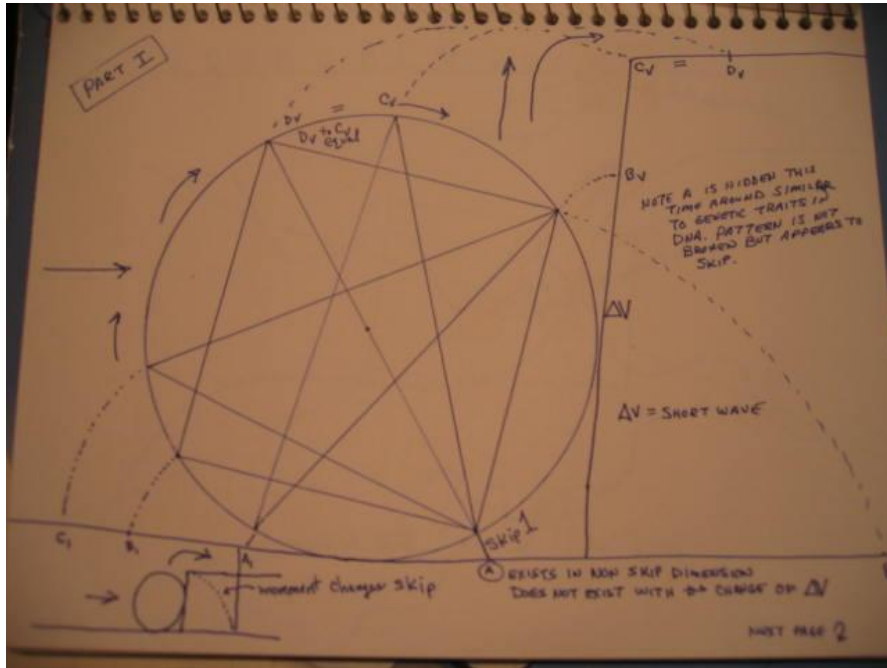 PART I
Dv = Cv
Dv to Cv
equal
Cv = Dv
Bv
NOTE A IS HIDDEN THIS
TIME AROUND SIMILAR
TO GENETIC TRAITS IN
DNA. PATTERN IS NOT
BROKEN BUT APPEARS TO
SKIP.
ΔV
ΔV = SHORT WAVE
C1
B1
A1
SKIP 1
movement changes skip
A EXISTS IN NON SKIP DIMENSION
DOES NOT EXIST WITH CHANGE OF ΔV
NEXT PAGE 2